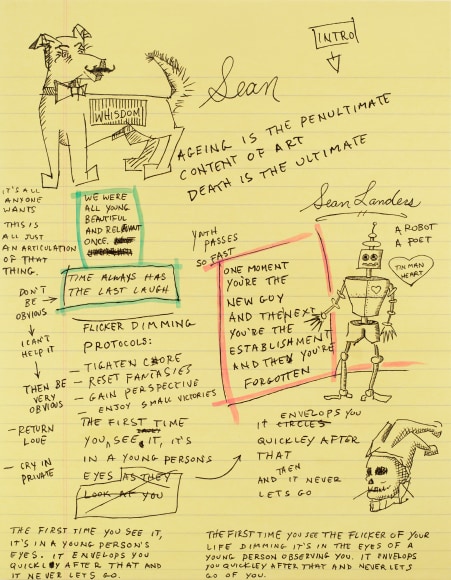 INTRO
Sean
WHISDOM
AGEING IS THE PENULTIMATE
CONTENT OF ART
DEATH IS THE ULTIMATE
IT'S ALL
ANYONE
WANTS
THIS IS
ALL JUST
AN ARTICULATION
OF THAT
THING.
WE WERE
ALL YOUNG
BEAUTIFUL
AND RELEVANT
ONCE.
TIME ALWAYS HAS
THE LAST LAUGH
DON'T
BE
OBVIOUS
I CAN'T
HELP IT
THEN BE
VERY
OBVIOUS
– RETURN
LOVE
– CRY IN
PRIVATE
FLICKER DIMMING
PROTOCOLS:
– TIGHTEN CORE
– RESET FANTASIES
– GAIN PERSPECTIVE
– ENJOY SMALL VICTORIES
THE FIRST TIME
YOU SEE IT, IT'S
IN A YOUNG PERSONS
EYES AS THEY
LOOK AT YOU
YOUTH
PASSES
SO FAST
ONE MOMENT
YOU'RE THE
NEW GUY
AND THE NEXT
YOU'RE THE
ESTABLISHMENT
AND THEN YOU'RE
FORGOTTEN
Sean Landers
A ROBOT
A POET
TIN MAN
HEART
ENVELOPS YOU
IT CIRCLES
QUICKLEY AFTER
THAT
THEN
AND IT NEVER
LETS GO
THE FIRST TIME YOU SEE IT,
IT'S IN A YOUNG PERSON'S
EYES. IT ENVELOPS YOU
QUICKLY AFTER THAT AND
IT NEVER LETS GO.
THE FIRST TIME YOU SEE THE FLICKER OF YOUR
LIFE DIMMING IT'S IN THE EYES OF A
YOUNG PERSON OBSERVING YOU. IT ENVELOPS
YOU QUICKLEY AFTER THAT AND NEVER LETS
GO OF YOU.